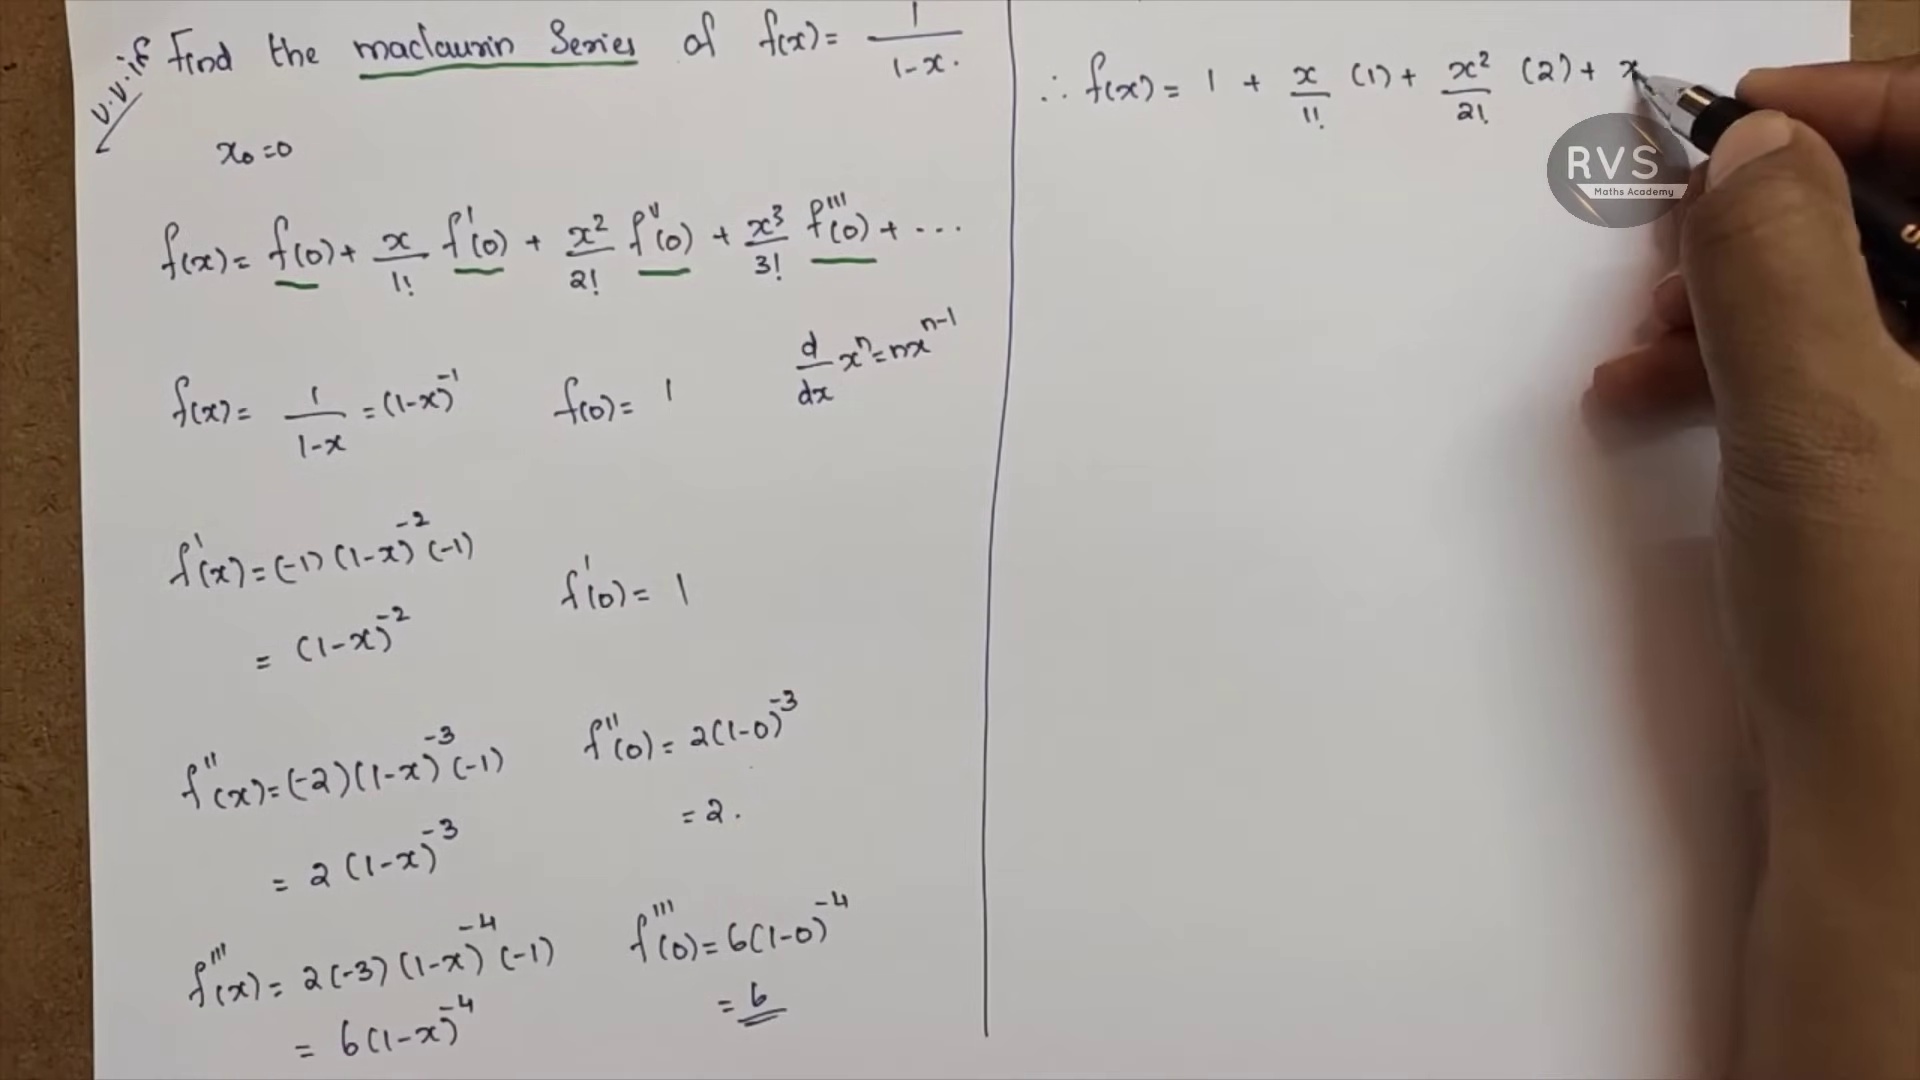 v.v.if Find the maclaurin Series of f(x)= 1/1-x.
x₀=0
f(x)= f(0)+ x/1! f'(0) + x²/2! f''(0) + x³/3! f'''(0) + ...
d/dx xⁿ=nxⁿ⁻¹
f(x)= 1/1-x =(1-x)⁻¹ f(0)= 1
f'(x)=(-1)(1-x)⁻²(-1)
f'(0)= 1
= (1-x)⁻²
f''(x)=(-2)(1-x)⁻³(-1) f''(0)= 2(1-0)⁻³
= 2(1-x)⁻³ = 2.
f'''(x)= 2(-3)(1-x)⁻⁴(-1) f'''(0)= 6(1-0)⁻⁴
= 6(1-x)⁻⁴ = 6
∴ f(x)= 1 + x/1! (1)+ x²/2! (2)+ x
RVS
Maths Academy